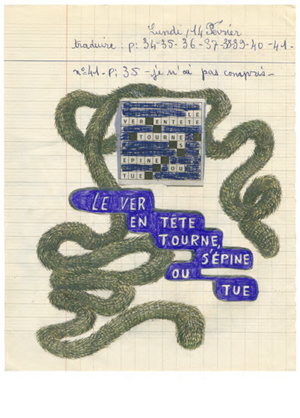 Lundi, 14 Février
traduire: p: 34-35-36-37-38-39-40-41-
n°41-p: 35 - je n'ai pas compris-
LE
VER ENTETE
TOURNE
S
EPINE OU
TUE
LE VER
EN TÊTE
TOURNE,
S'ÉPINE
OU
TUE